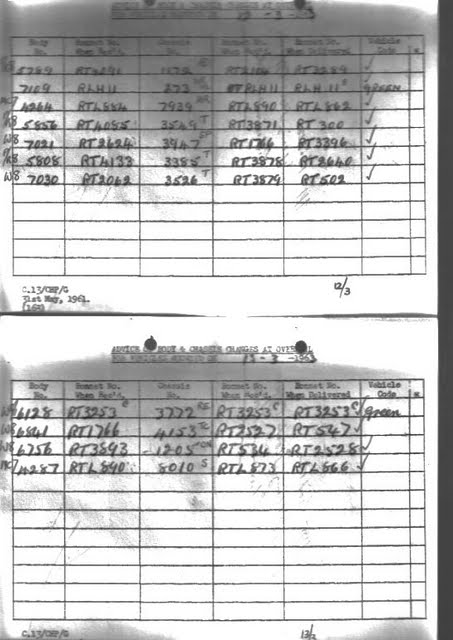 ADVICE BODY & CHASSIS CHANGES AT
12 - 3 - 1963
Body No. Bonnet No. When Rec'd. Chassis No. Bonnet No. Bonnet No. When Delivered Vehicle Code
5789 RT4091 1172 RT2104 RT3289 ✓
7109 RLH11 273 RLH11 RLH 11 GREEN
RC7 4264 RTL884 7939 RTL890 RTL862 ✓
5856 RT4085 3549 T RT3871 RT 300 ✓
W8 7021 RT2624 3947 SP RT1766 RT3396 ✓
5808 RT4133 3385 T RT3878 RT2640 ✓
W8 7030 RT2062 3526 T RT3879 RT502 ✓
C.13/CHP/G
31st May, 1961.
(162)
12/3
ADVICE BODY & CHASSIS CHANGES AT
13 - 3 - 1963
Body No. Bonnet No. When Rec'd. Chassis No. Bonnet No. Bonnet No. When Delivered Vehicle Code
6128 RT3253 3772 RT3253 RT3253 ✓ Green
W8 6841 RT1766 4153 RT2527 RT547 ✓
W8 6756 RT3593 1205 RT534 RT2528 ✓
RC7 4287 RTL890 8010 S RTL873 RTL866 ✓
C.13/CHP/G
13/3